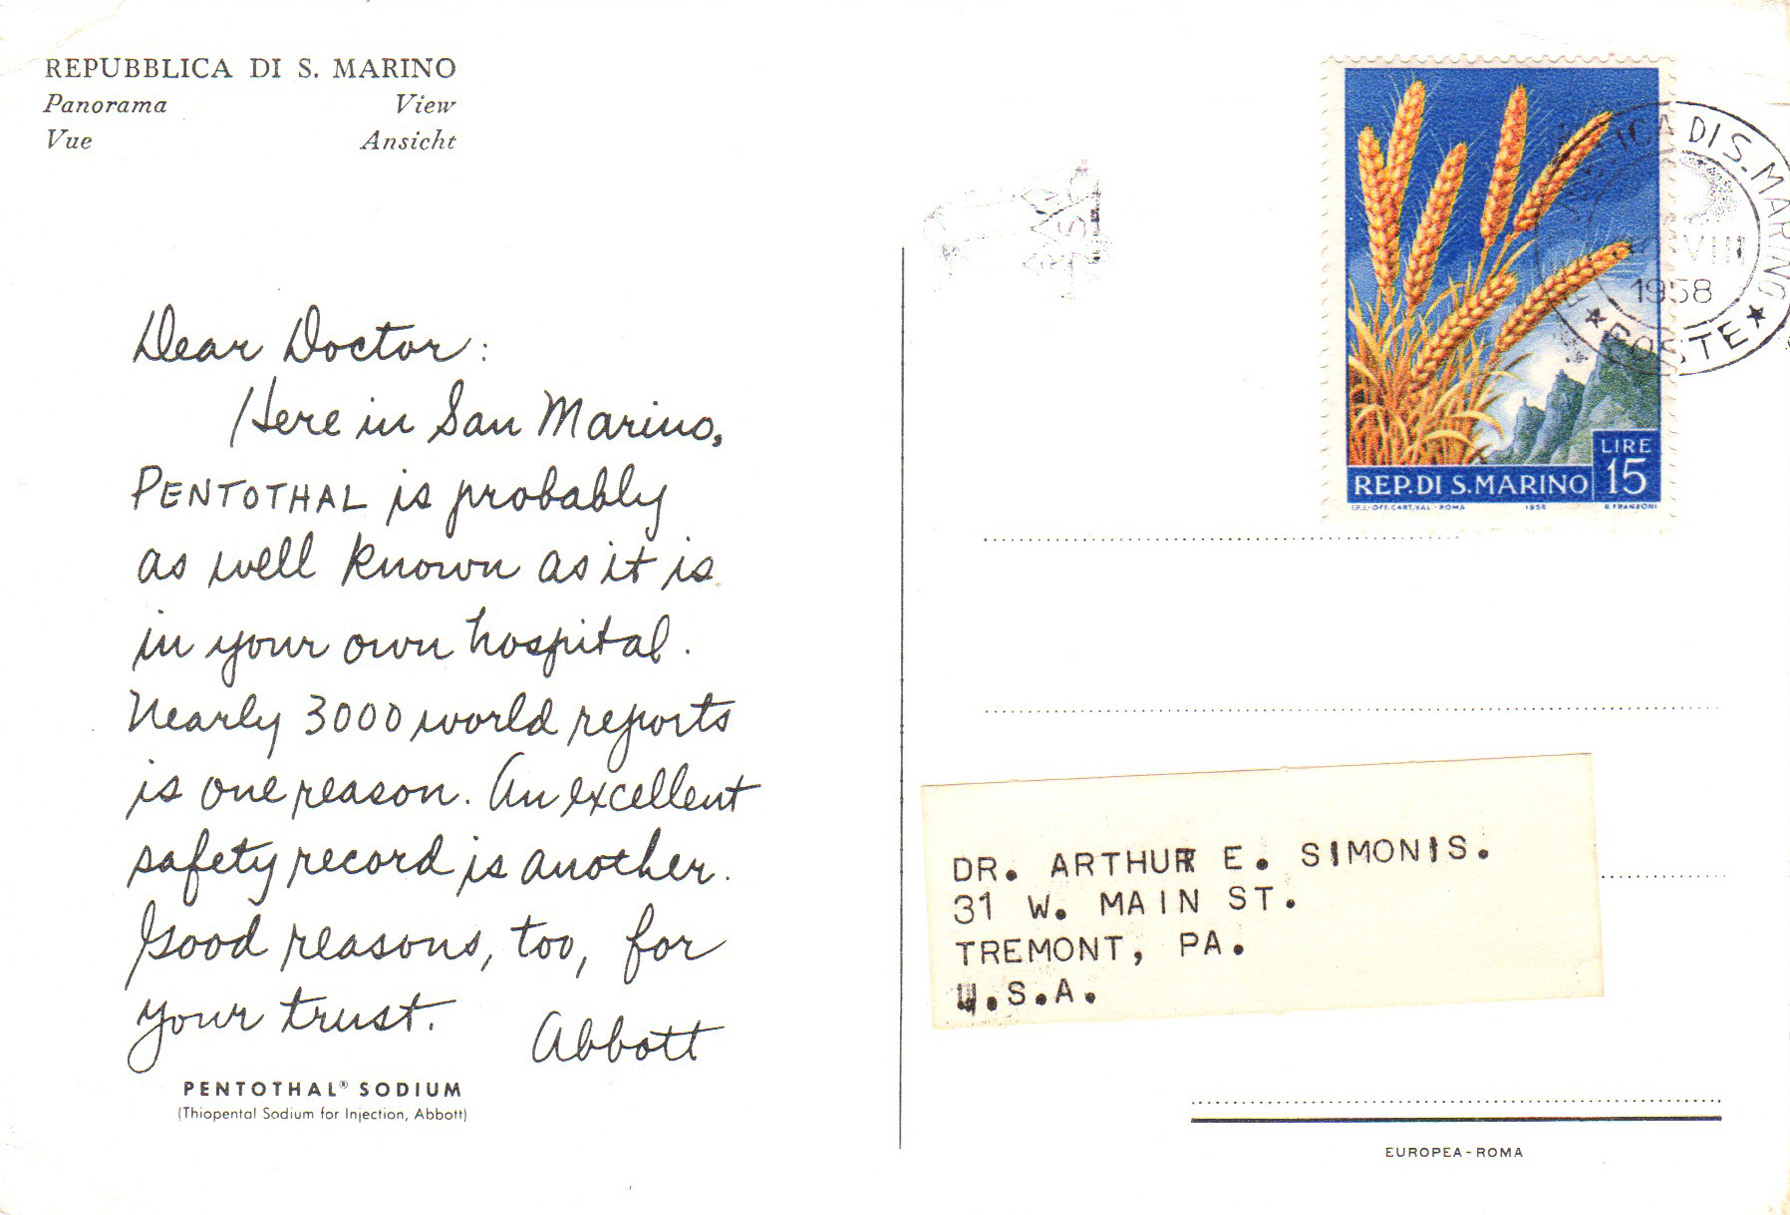 REPUBBLICA DI S. MARINO
Panorama View
Vue Ansicht
Dear Doctor:
Here in San Marino,
PENTOTHAL is probably
as well known as it is
in your own hospital.
Nearly 3000 world reports
is one reason. An excellent
safety record is another.
Good reasons, too, for
your trust.
Abbott
PENTOTHAL® SODIUM
(Thiopental Sodium for Injection, Abbott)
DI S. MARINO
VIII
1958
★ POSTE ★
LIRE
15
REP. DI S. MARINO
I.P.S.-OFF. CART. VAL - ROMA 1958 R. FRANZONI
DR. ARTHUR E. SIMONIS.
31 W. MAIN ST.
TREMONT, PA.
U.S.A.
EUROPEA - ROMA